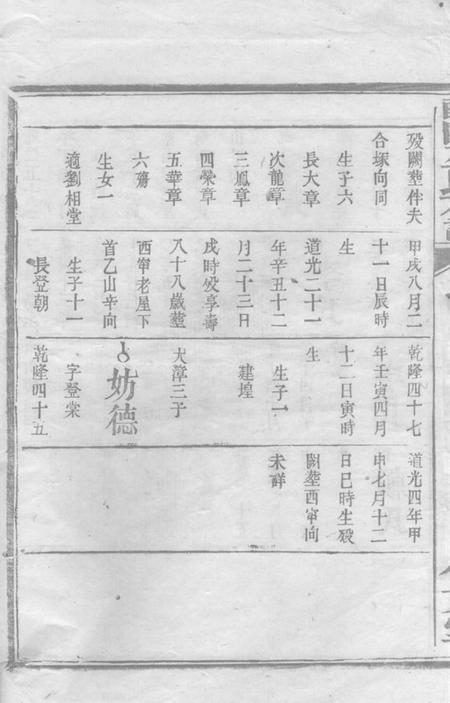 歿闕塟伴夫
合塚向同
生子六
長大章
次龍章
三鳳章
四榮章
五華章
六殤
生女一
適劉相堂
甲戌八月二
十一日辰時
生
道光二十一
年辛丑十二
月二十三日
戌時歿享壽
八十八歲塟
西甯老屋下
首乙山辛向
生子十一
長登朝
乾隆四十七
年壬寅四月
十二日寅時
生
生子一
建煌
大漳三子
妨德
字登棠
乾隆四十五
道光四年甲
申七月十二
日巳時生歿
闕塟西甯向
未詳